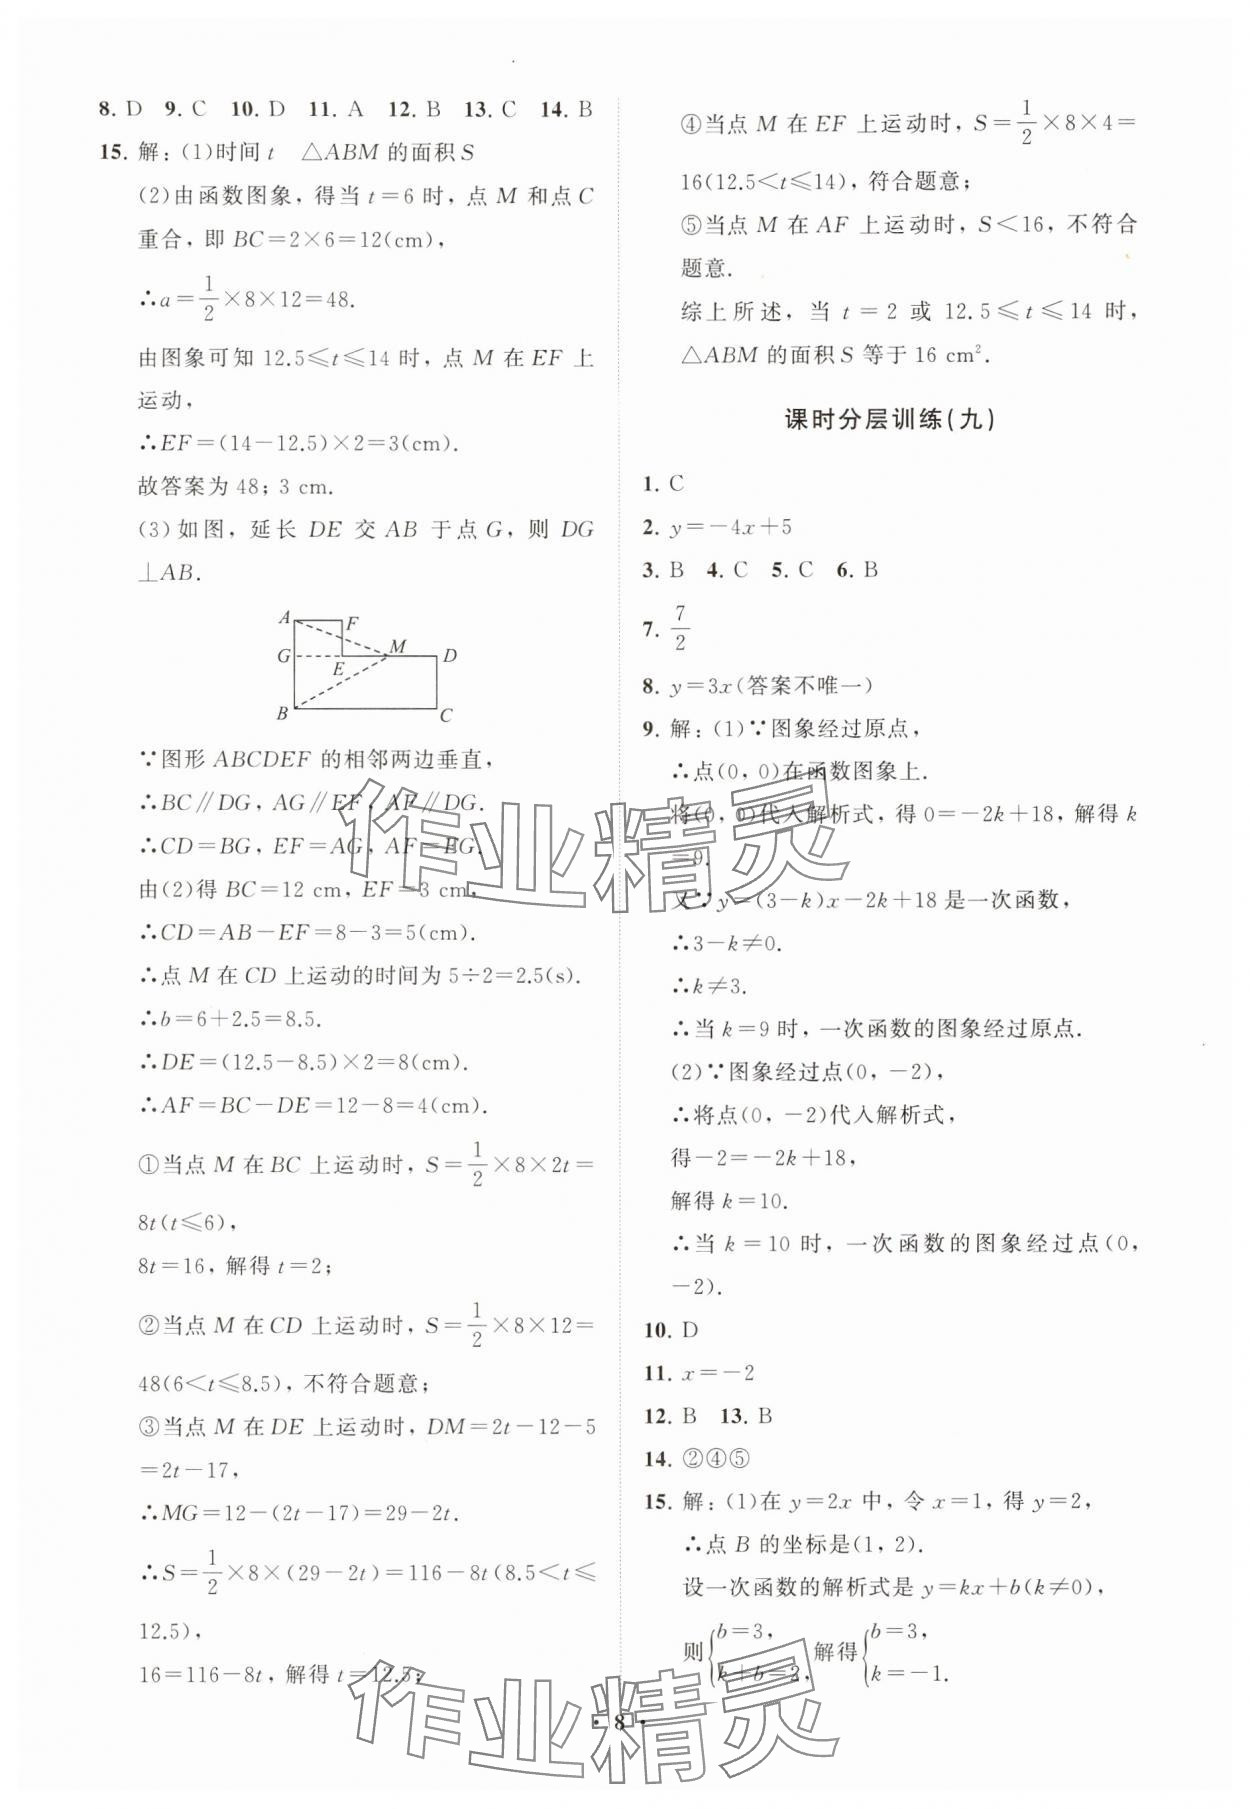 8. D 9. C 10. D 11. A 12. B 13. C 14. B
15. 解：(1)时间 t △ABM 的面积 S
(2)由函数图象，得当 t=6 时，点 M 和点 C
重合，即 BC=2×6=12(cm)，
∴a=1/2×8×12=48.
由图象可知 12.5≤t≤14 时，点 M 在 EF 上
运动，
∴EF=(14-12.5)×2=3(cm).
故答案为 48；3 cm.
(3)如图，延长 DE 交 AB 于点 G，则 DG
⊥AB.
A
F
G
E
M
D
B
C
∵图形 ABCDEF 的相邻两边垂直，
∴BC∥DG，AG∥EF，AF∥DG.
∴CD=BG，EF=AG，AF=EG.
由(2)得 BC=12 cm，EF=3 cm，
∴CD=AB-EF=8-3=5(cm).
∴点 M 在 CD 上运动的时间为 5÷2=2.5(s).
∴b=6+2.5=8.5.
∴DE=(12.5-8.5)×2=8(cm).
∴AF=BC-DE=12-8=4(cm).
①当点 M 在 BC 上运动时，S=1/2×8×2t=
8t(t≤6)，
8t=16，解得 t=2；
②当点 M 在 CD 上运动时，S=1/2×8×12=
48(6<t≤8.5)，不符合题意；
③当点 M 在 DE 上运动时，DM=2t-12-5
=2t-17，
∴MG=12-(2t-17)=29-2t.
∴S=1/2×8×(29-2t)=116-8t(8.5<t≤
12.5)，
16=116-8t，解得 t=12.5；
④当点 M 在 EF 上运动时，S=1/2×8×4=
16(12.5<t≤14)，符合题意；
⑤当点 M 在 AF 上运动时，S<16，不符合
题意.
综上所述，当 t=2 或 12.5≤t≤14 时，
△ABM 的面积 S 等于 16 cm².
课时分层训练(九)
1. C
2. y=-4x+5
3. B 4. C 5. C 6. B
7. 7/2
8. y=3x(答案不唯一)
9. 解：(1)∵图象经过原点，
∴点(0，0)在函数图象上.
将(0，0)代入解析式，得 0=-2k+18，解得 k
=9.
又∵y=(3-k)x-2k+18 是一次函数，
∴3-k≠0.
∴k≠3.
∴当 k=9 时，一次函数的图象经过原点.
(2)∵图象经过点(0，-2)，
∴将点(0，-2)代入解析式，
得-2=-2k+18，
解得 k=10.
∴当 k=10 时，一次函数的图象经过点(0，
-2).
10. D
11. x=-2
12. B 13. B
14. ②④⑤
15. 解：(1)在 y=2x 中，令 x=1，得 y=2，
∴点 B 的坐标是(1，2).
设一次函数的解析式是 y=kx+b(k≠0)，
则{b=3，k+b=2，解得{b=3，k=-1.
· 8 ·
作业精灵
作业精灵